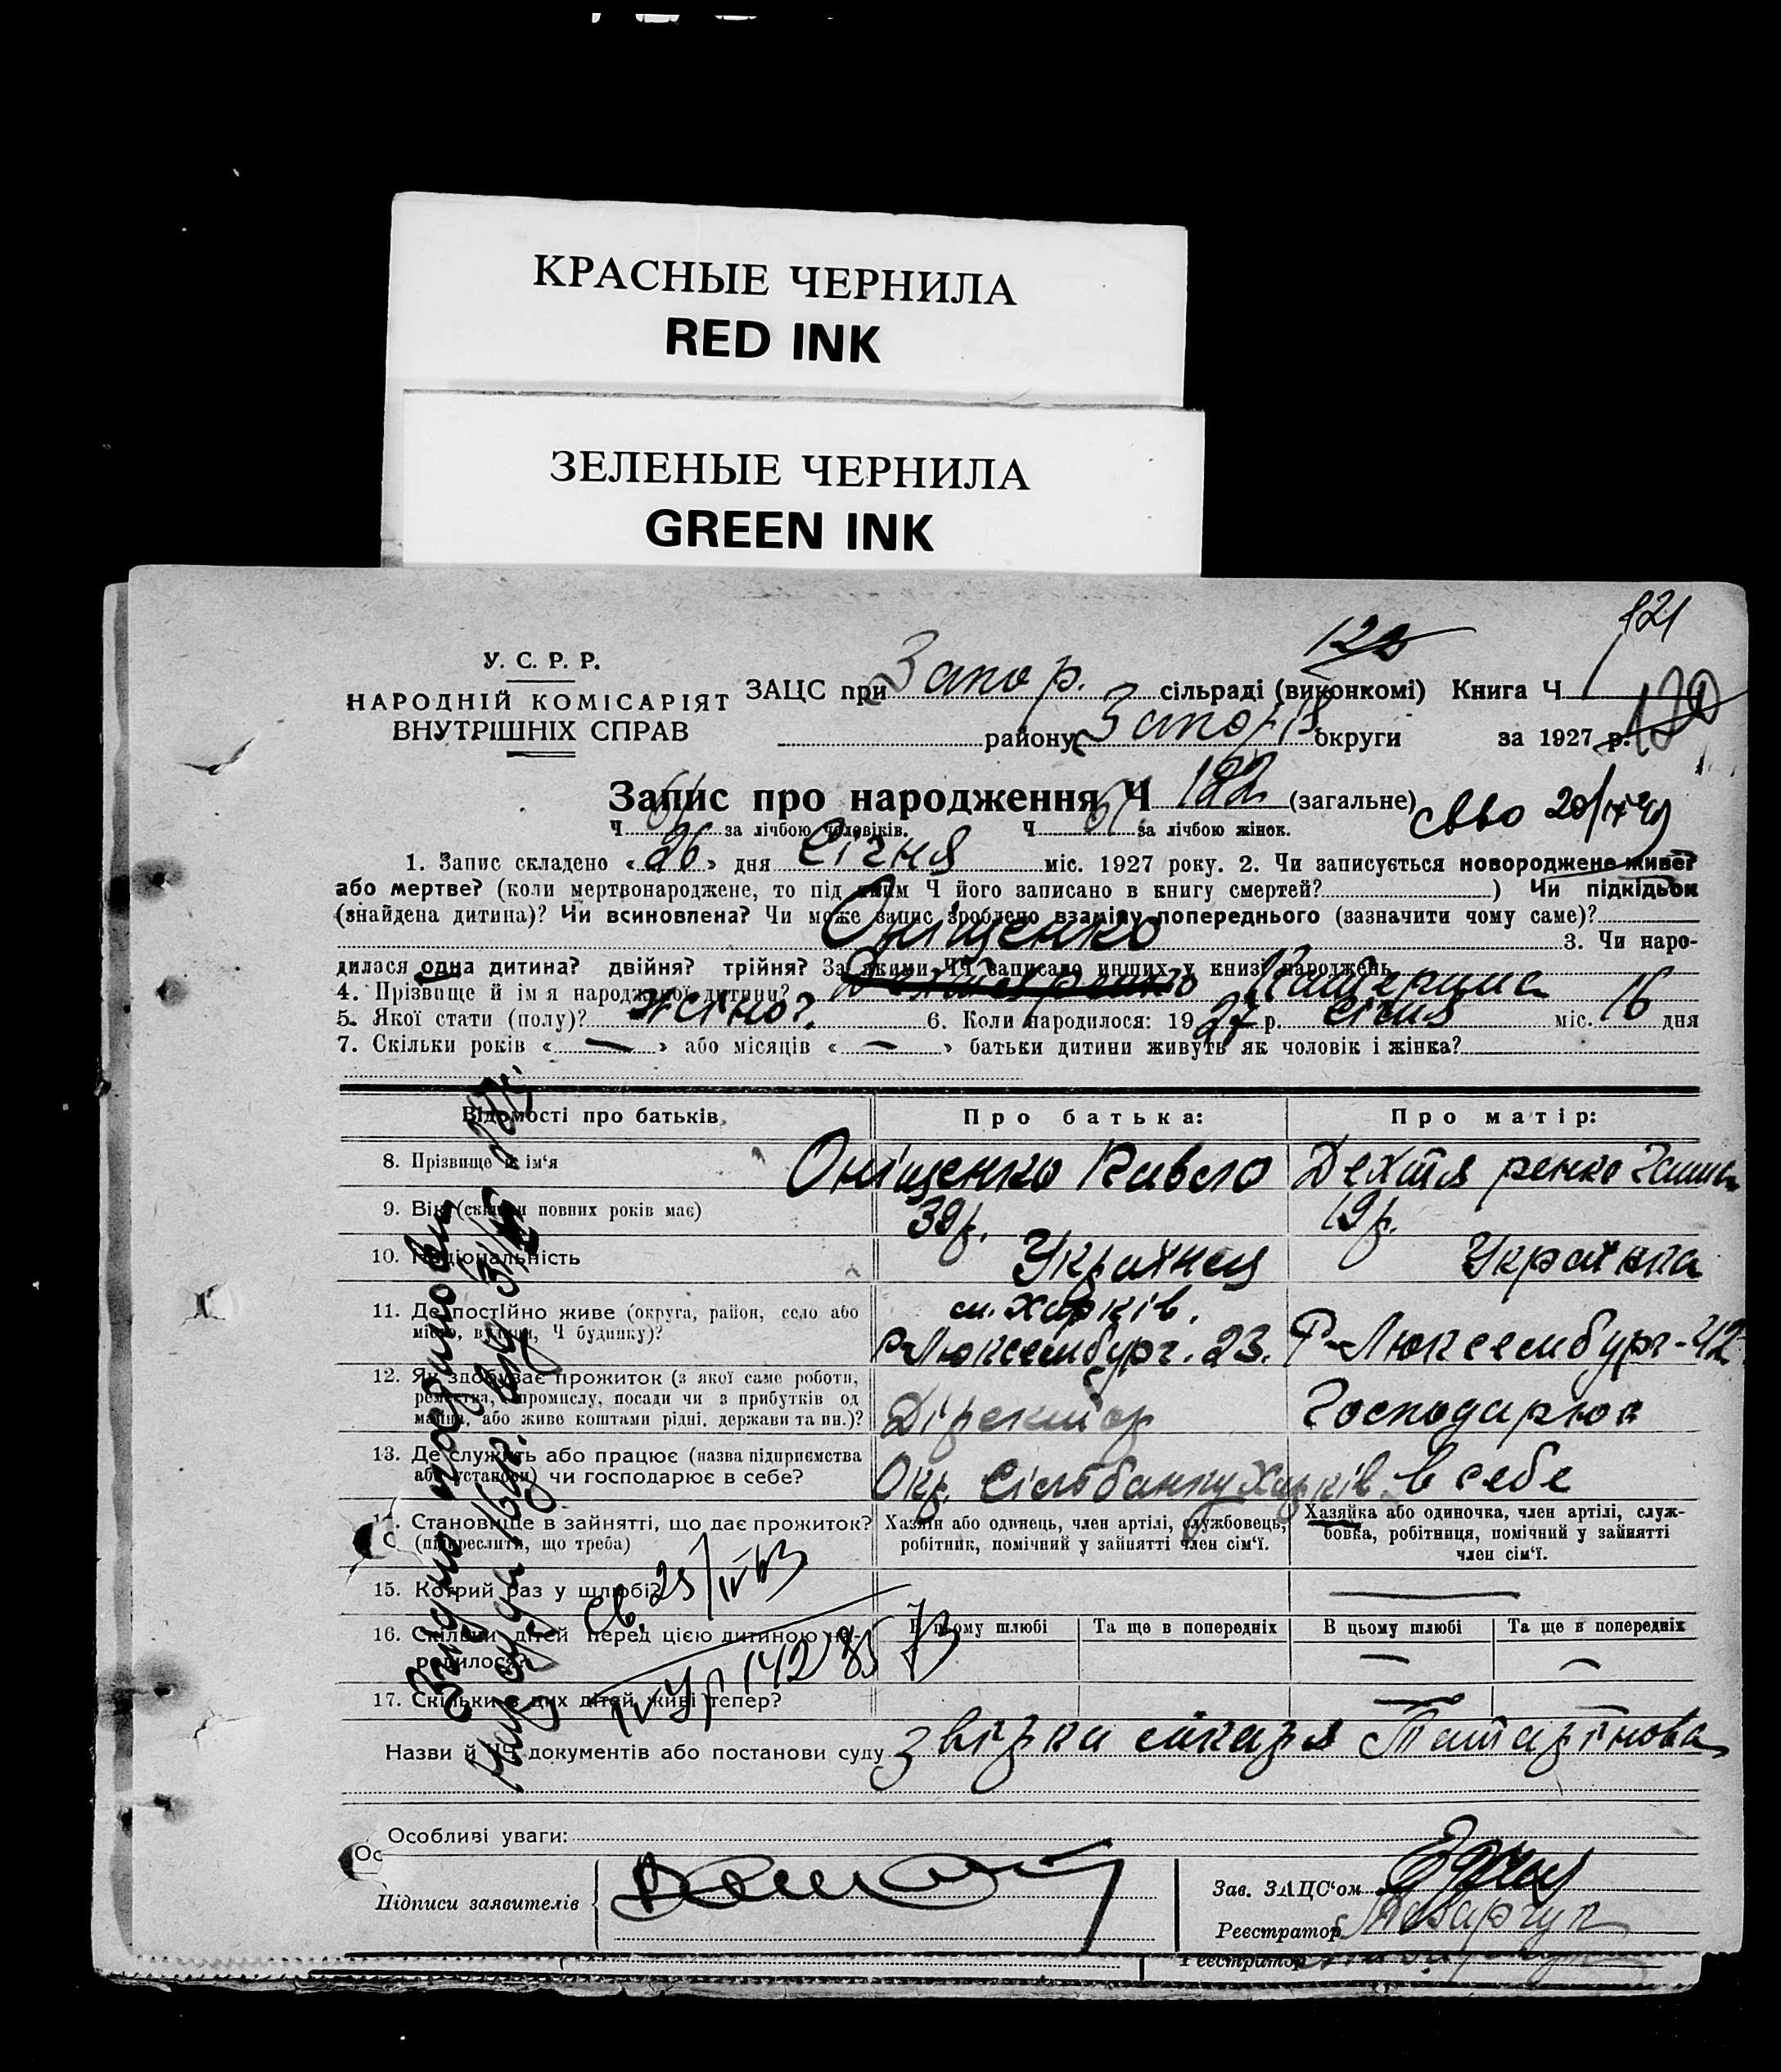 КРАСНЫЕ ЧЕРНИЛА
RED INK
ЗЕЛЕНЫЕ ЧЕРНИЛА
GREEN INK
121
У. С. Р. Р.
НАРОДНІЙ КОМІСАРІЯТ
ВНУТРІШНІХ СПРАВ
ЗАЦС при Запор. сільраді (виконкомі) Книга Ч
району Запоріз округи за 1927 р.
Запис про народження Ч 122 (загальне)
Ч за лічбою чоловіків. Ч 61 за лічбою жінок.
1. Запис складено «26» дня Січня міс. 1927 року. 2. Чи записується новороджене живе?
або мертве? (коли мертвонароджене, то під яким Ч його записано в книгу смертей? ) Чи підкідьок
(знайдена дитина)? Чи всиновлена? Чи може запис зроблено взаміну попереднього (зазначити чому саме)?
Оніщенко 3. Чи наро-
дилася одна дитина? двійня? трійня? За якими ЧЧ записано инших у книзі народжень
4. Прізвище й ім'я народженої дитини? Дехтяренко Катерина
5. Якої стати (полу)? жіно?. 6. Коли народилося: 1927 р. січня міс. 16 дня
7. Скільки років «—» або місяців «—» батьки дитини живуть як чоловік і жінка?
Відомості про батьків Про батька: Про матір:
8. Прізвище й ім'я Оніщенко Павло Дехтя ренко Ганна
9. Вік (скільки повних років має) 39 р. 19 р.
10. Національність Українец Українка
11. Де постійно живе (округа, район, село або
місто, вулиця, Ч будинку)?
м. Харків.
Р-Люксембург. 23. Р-Люксембург-42
12. Як здобуває прожиток (з якої саме роботи,
ремества, промислу, посади чи з прибутків од
майна, або живе коштами рідні, держави та ин.)?
Діректор Господарює
13. Де служить або працює (назва підприємства
або установи) чи господарює в себе?
Окр. Сільбанку Харків в себе
14. Становище в зайнятті, що дає прожиток?
(підкреслити, що треба)
Хазяїн або одинець, член артілі, службовець,
робітник, помічний у зайнятті член сім'ї.
Хазяйка або одиночка, член артілі, служ-
бовка, робітниця, помічний у зайнятті
член сім'ї.
15. Котрий раз у шлюбі?
16. Скільки дітей перед цією дитиною на-
родилося?
В цьому шлюбі Та ще в попередніх В цьому шлюбі Та ще в попередніх
17. Скільки з цих дітей живі тепер?
Назви й ЧЧ документів або постанови суду звірка лікаря Татарінова
Особливі уваги:
Підписи заявителів
Зав. ЗАЦС'ом
Реєстратор
Реєстратор